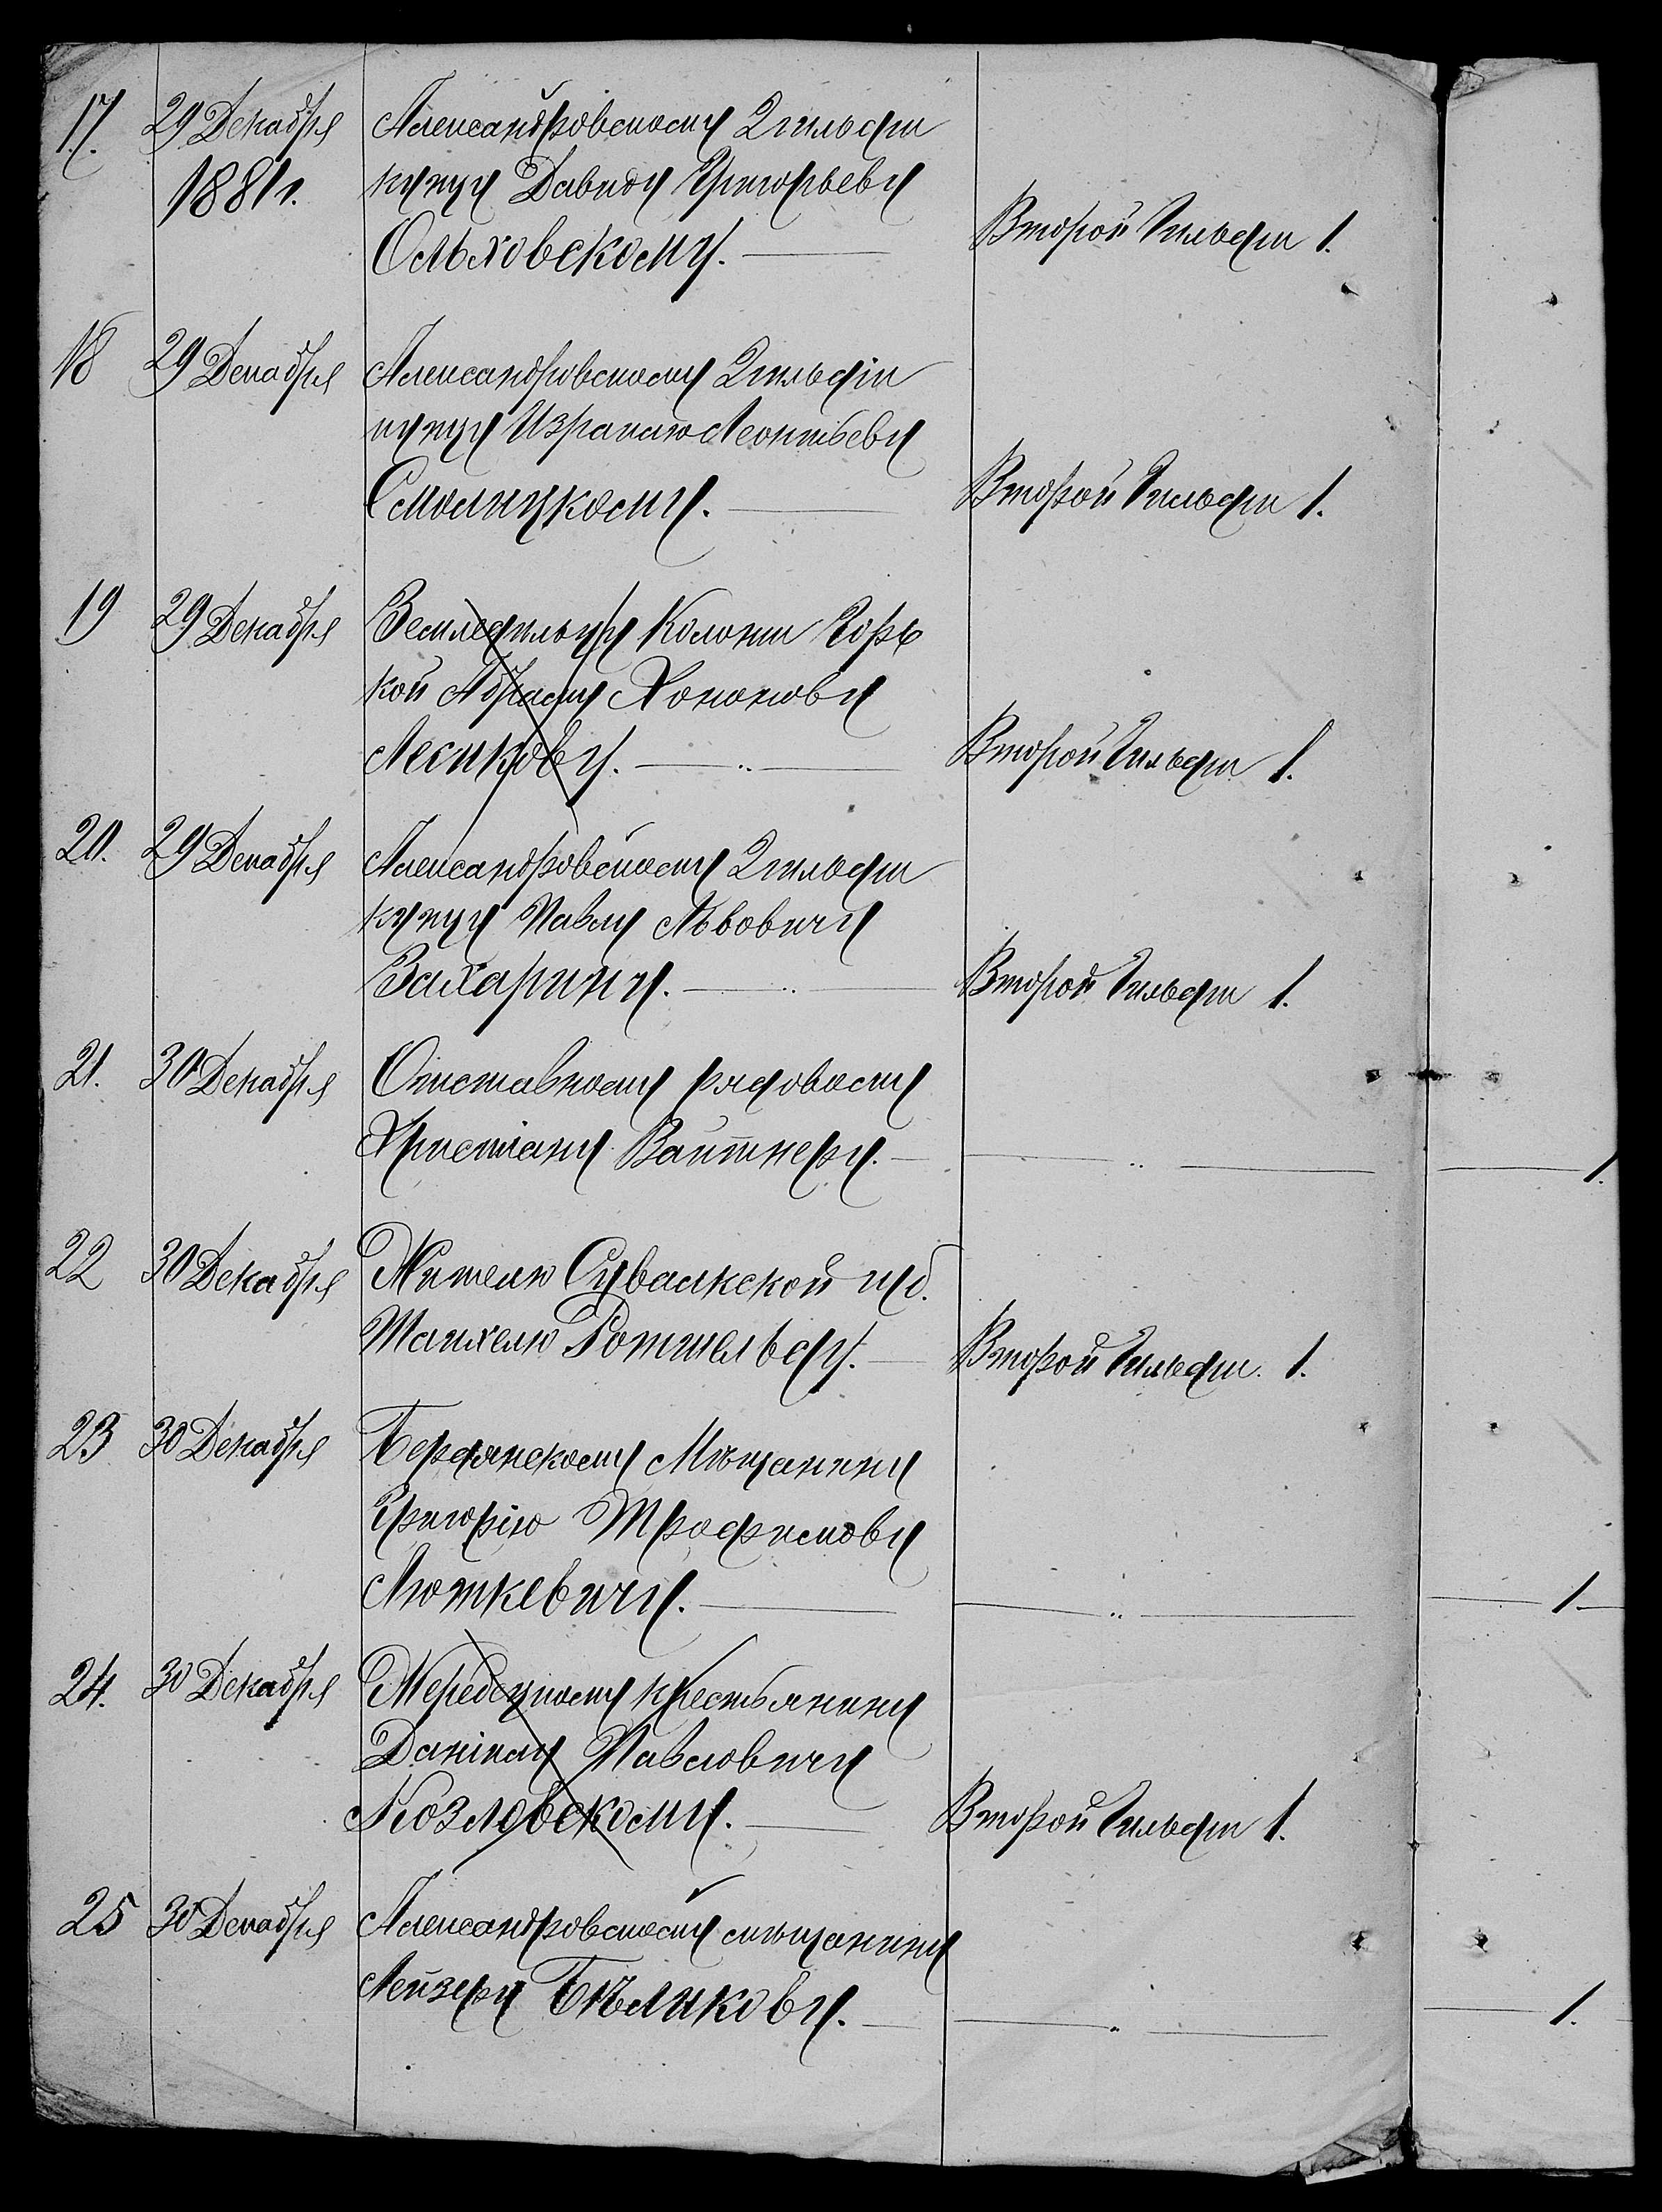 17. 29 Декабря Александровскому 2 гильдіи
1881 г. купцу Давиду Григорьеву
Ольховскому. Второй Гильдіи 1.
18 29 Декабря Александровскому 2 гильдіи
купцу Израилю Леонтьеву
Смолицкому. Второй Гильдіи 1.
19 29 Декабря Земледельцу Колоніи Горь
кой Абраму Хононову
Лесикову. Второй Гильдіи 1.
20. 29 Декабря Александровскому 2 гильдіи
купцу Павлу Львовичу
Захарину. Второй Гильдіи 1.
21. 30 Декабря Отставному рядовому
Христіану Вайтнеру. 1.
22 30 Декабря Жителю Сувалкской губ.
Ротшельду. Второй Гильдіи. 1.
23 30 Декабря Бердянскому Мѣщанину
Григорію Трофимову
Люткевичу. 1.
24. 30 Декабря Жеребецкому крестьянину
Данілу Павловичу
Козловскому. Второй Гильдіи 1.
25 30 Декабря Александровскому мѣщанину
Лейзеру Бѣликову. 1.